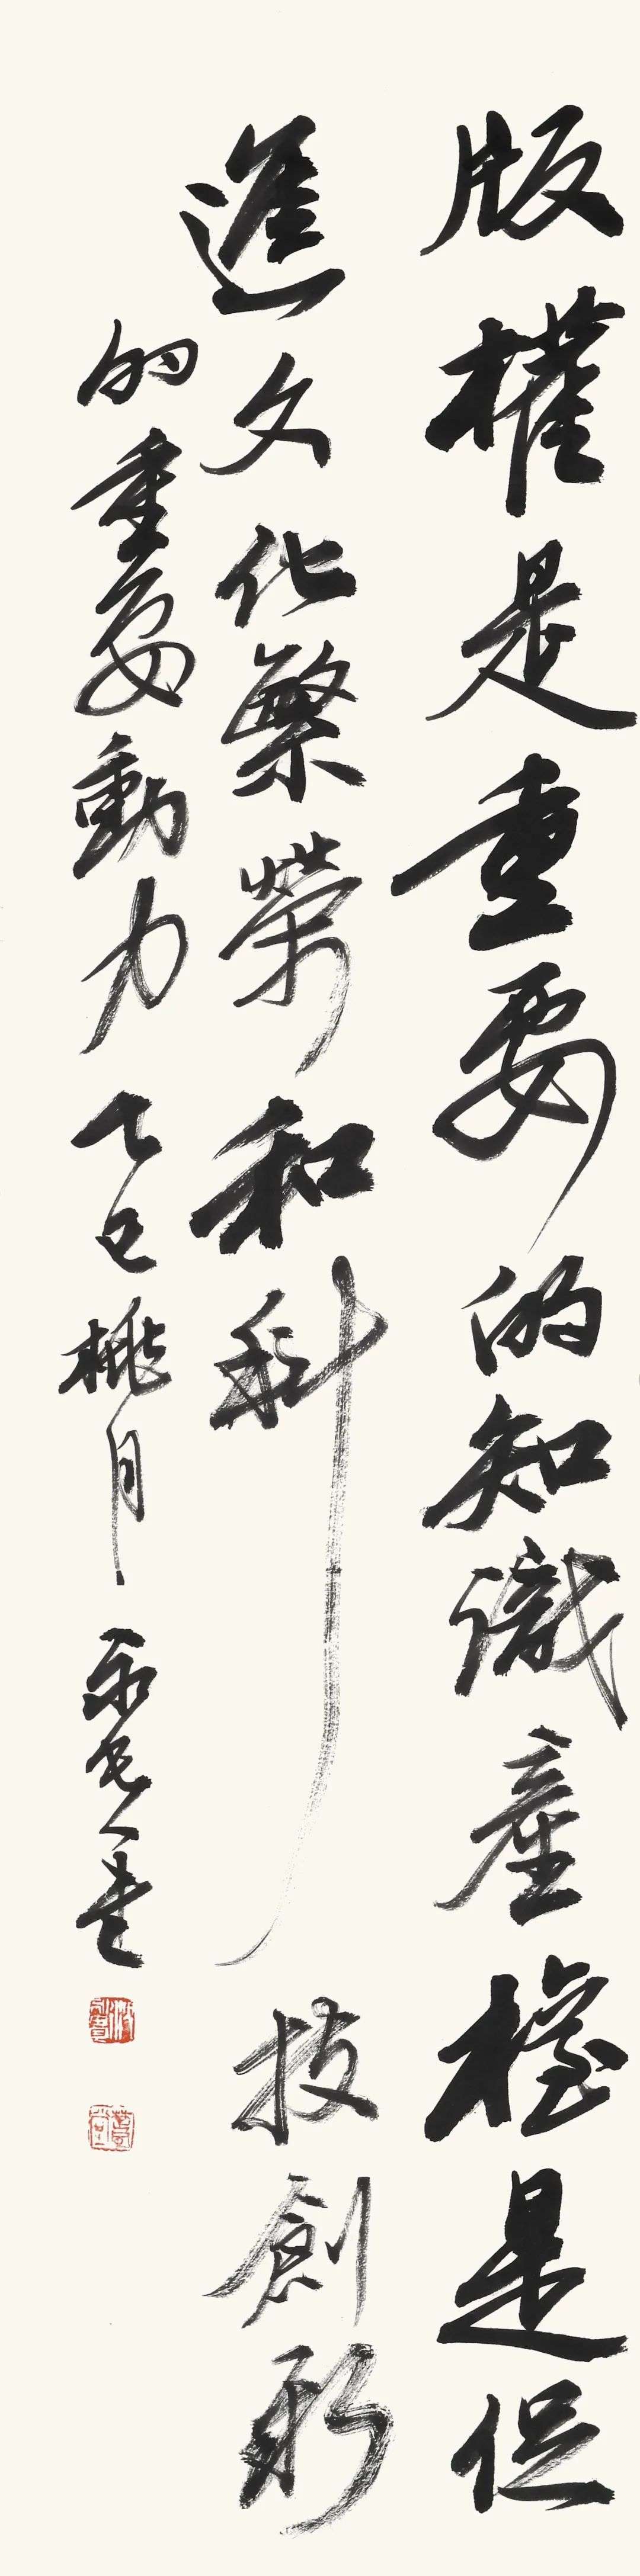 版權是重要的知識產權是促
進文化繁榮和科技創新
的重要動力乙巳桃月